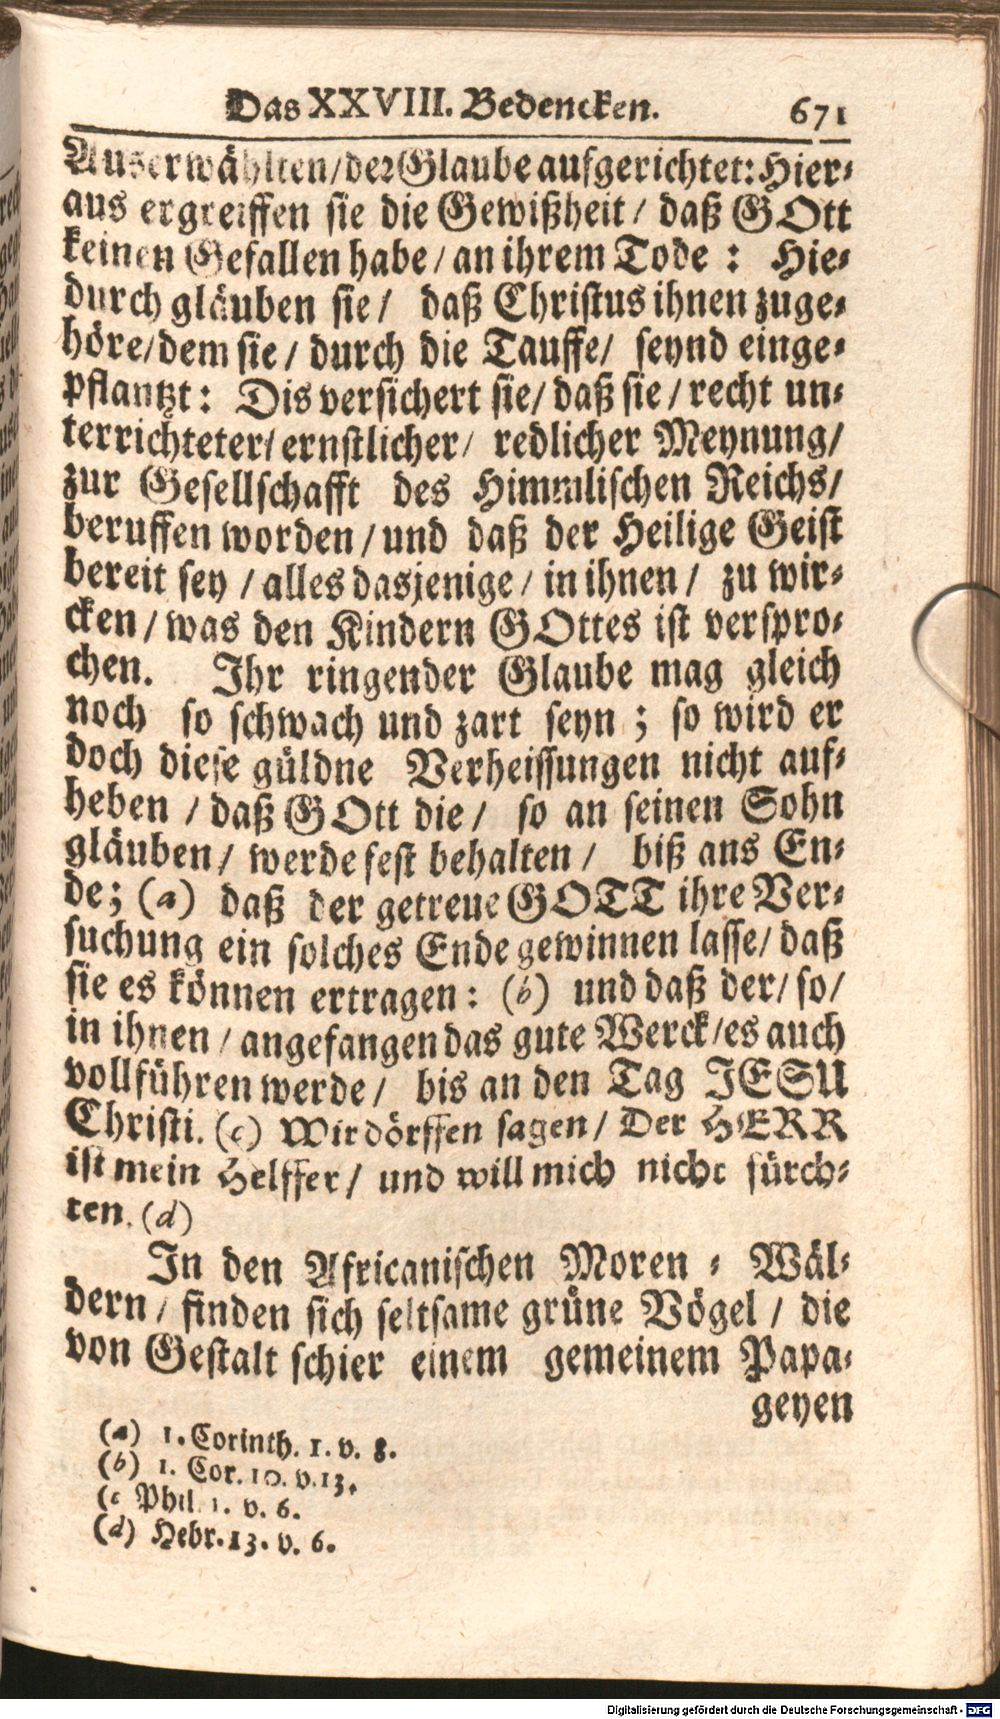 Das XXVIII. Bedencken. 671
Auserwählten/der Glaube aufgerichtet: Hier-
aus ergreiffen sie die Gewißheit/ daß GOtt
keinen Gefallen habe/an ihrem Tode: Hie-
durch gläuben sie/ daß Christus ihnen zuge-
höre/dem sie/ durch die Tauffe/ seynd einge-
pflantzt: Dis versichert sie/ daß sie/ recht un-
terrichteter/ ernstlicher/ redlicher Meynung/
zur Gesellschafft des Himmlischen Reichs/
beruffen worden/und daß der Heilige Geist
bereit sey/alles dasjenige/ in ihnen/ zu wir-
cken/was den Kindern GOttes ist verspro-
chen. Ihr ringender Glaube mag gleich
noch so schwach und zart seyn; so wird er
doch diese güldne Verheissungen nicht auf-
heben/daß GOtt die/ so an seinen Sohn
gläuben/ werde fest behalten/ biß ans En-
de; (a) daß der getreue GOTT ihre Ver-
suchung ein solches Ende gewinnen lasse/ daß
sie es können ertragen: (b) und daß der/ so/
in ihnen/angefangen das gute Werck/es auch
vollführen werde/ bis an den Tag JESU
Christi. (c) Wir dörffen sagen/ Der HERR
ist mein Helffer/ und will mich nicht fürch-
ten. (d)
In den Africanischen Moren-Wäl-
dern/ finden sich seltsame grüne Vögel/ die
von Gestalt schier einem gemeinem Papa-
geyen
(a) 1. Corinth. 1. v. 8.
(b) 1. Cor. 10. v. 13.
(c Phil. 1. v. 6.
(d) Hebr. 13. v. 6.
Digitalisierung gefördert durch die Deutsche Forschungsgemeinschaft - DFG